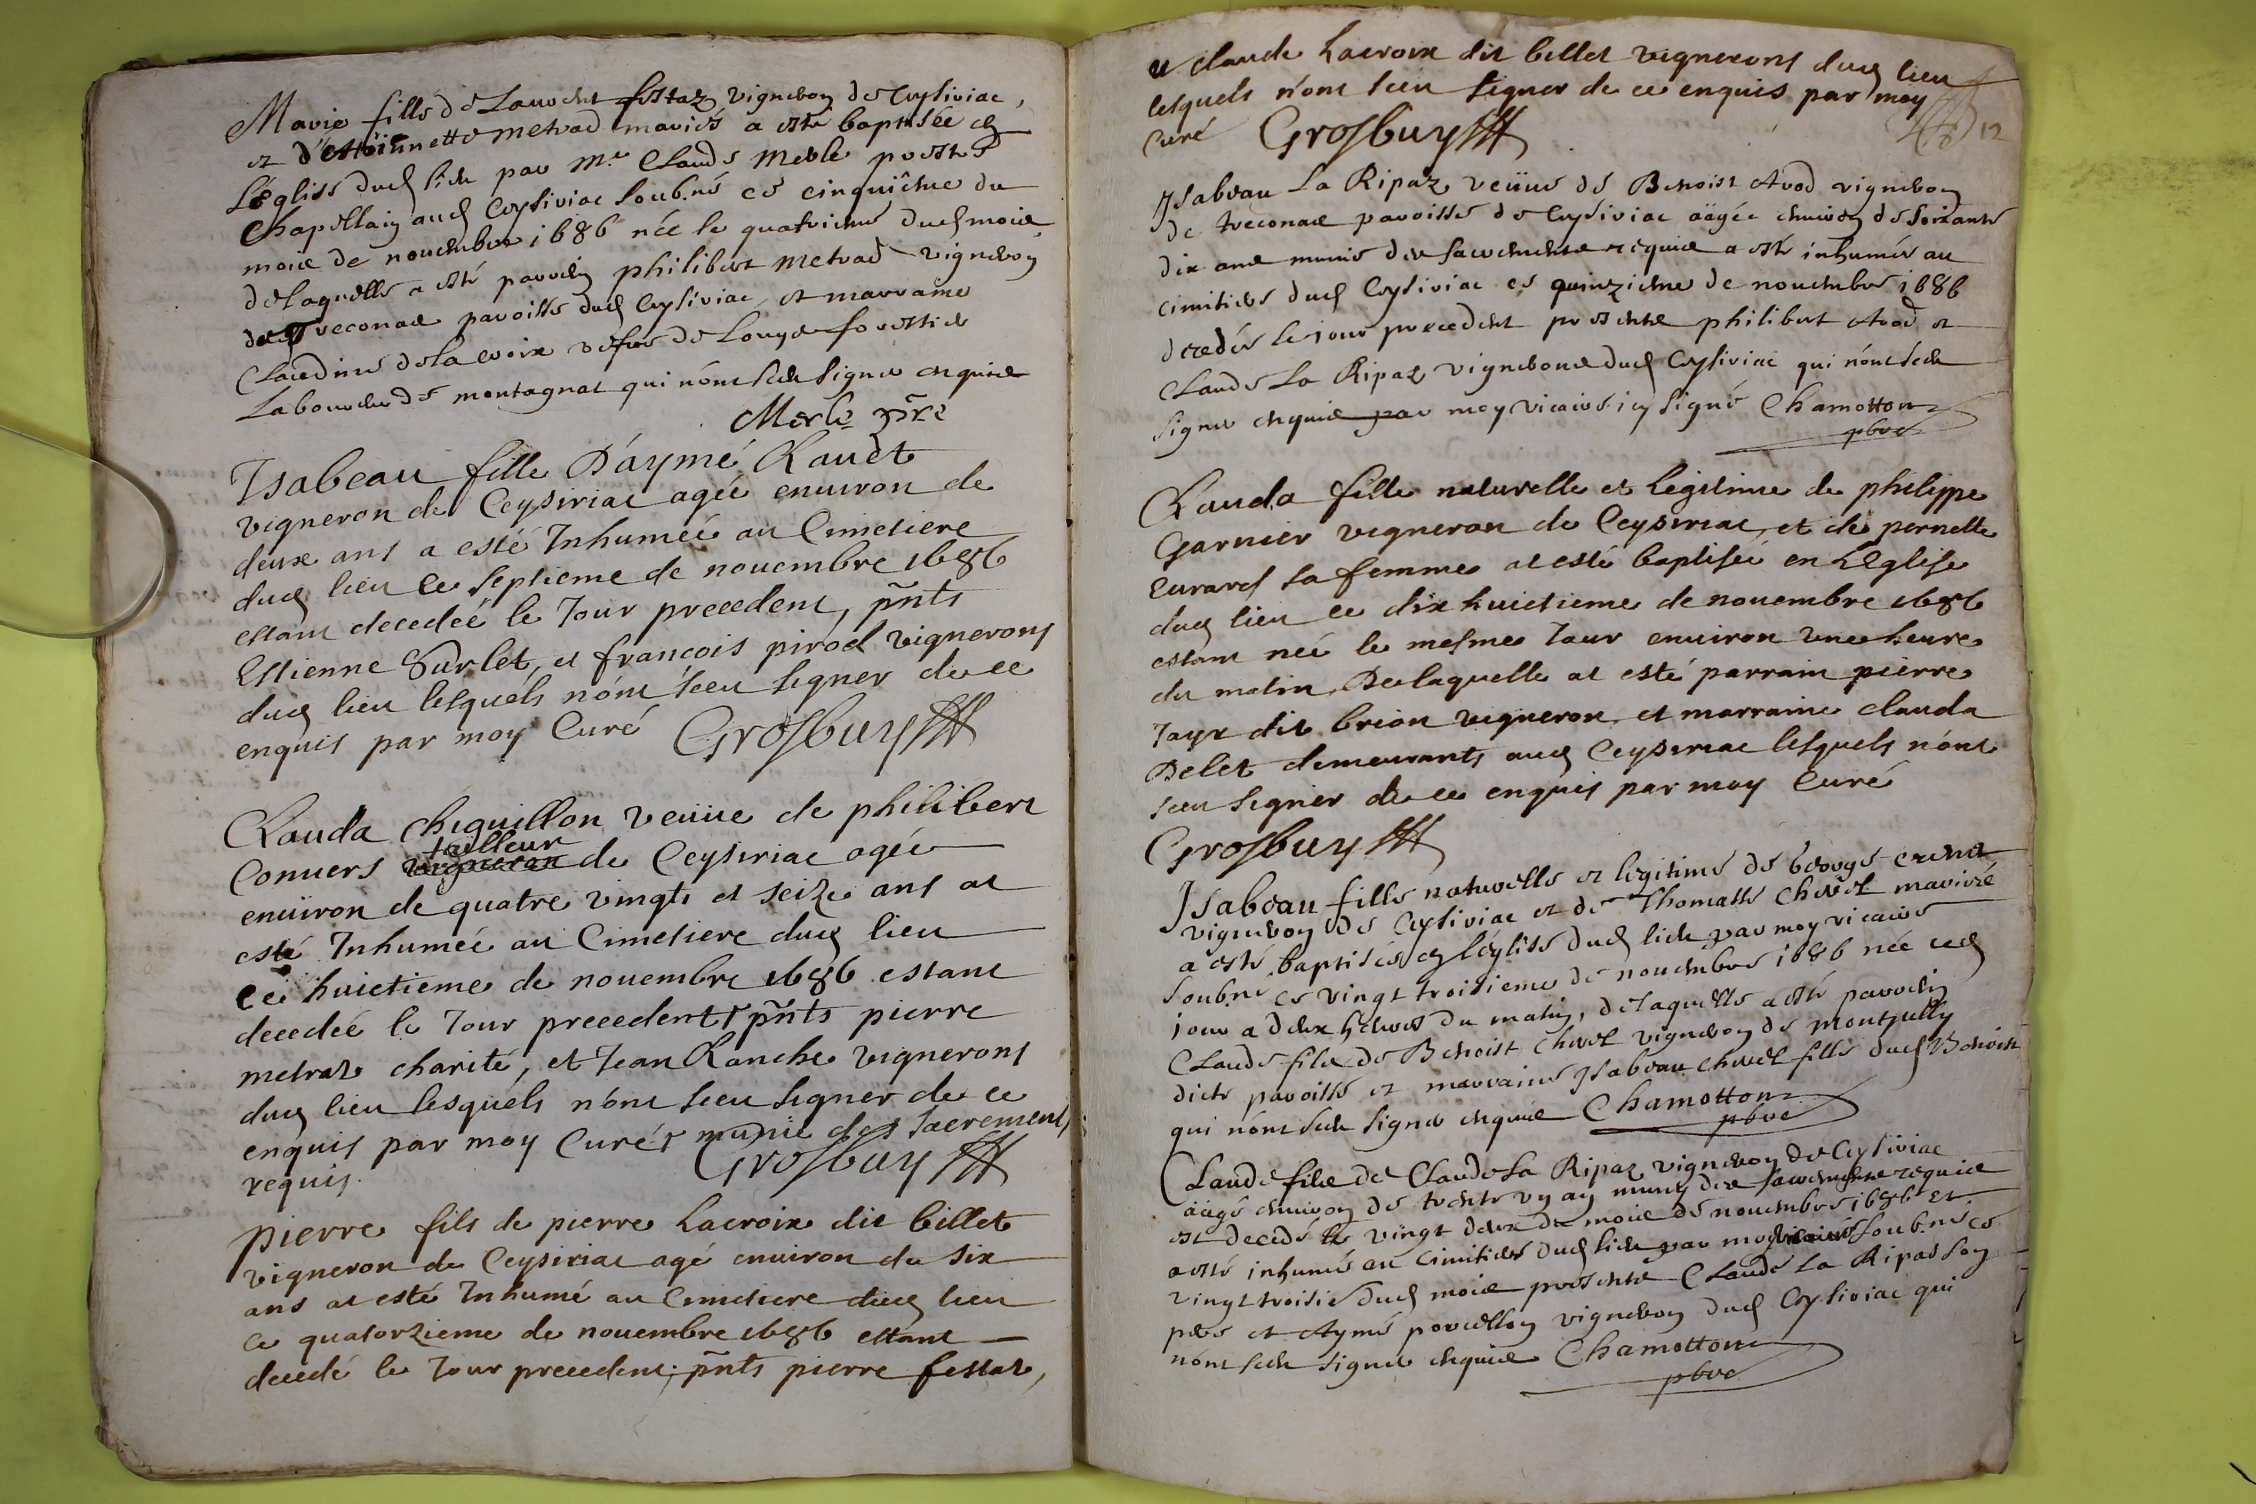 Marie fille de Laurent festaz vigneron de Ceysiriac,
et d'Anthoinette metrad mariés a esté baptisée en
L'église dud lieu par Mre Claude Merle prestre
Chapellain aud Ceysiriac soub.né ce cinquiême du
mois de nouembre 1686 née le quatrieme dud mois,
de laquelle a esté parrein philibert metrad vigneron
de Treconas paroisse dud Ceysiriac, et marraine
Claudine dela croix vefve de Louys forestier
Laboureur de montagnat qui n'ont sceu signer enquis
Merle p̃re
Isabeau fille D'aymé Raudt
vigneron de Ceysiriac agée enuiron de
deux ans a esté Inhumée au Cimetiere
dud lieu ce septieme de nouembre 1686
estant decedée le Jour precedent, pñts
Estienne Surlet, et francois pirod vignerons
dud lieu lesquels n'ont sceu signer de ce
enquis par moy Curé Grosbuy
Clauda chiquillon veüue de philibert
Conuers vigneron tailleur de Ceysiriac agée
enuiron de quatre vingts et seize ans at
esté Inhumée au Cimetiere dud lieu
ce huictieme de nouembre 1686 estant
decedée le Jour precedent, pñts pierre
metraz charité, et Jean Ranche vignerons
dud lieu lesquels n'ont sceu signer de ce
enquis par moy Curé munie des sacrements
requis. Grosbuy
pierre fils de pierre Lacroix dit billet
vigneron de Ceysiriac agé enuiron de six
ans at esté Inhumé au Cimetiere dud lieu
ce quatorzieme de nouembre 1686 estant
decedé le Jour precedent, pñts pierre festaz,
et claude Lacroix dit billet vignerons dud lieu
lesquels n'ont sceu signer de ce enquis par moy
Curé Grosbuy
12
Isabeau La Ripaz veüue de Benoist Avod vigneron
de treconas paroisse de Ceysiriac äagée enuiron de soixante
dix ans munie des sacrements requis a esté inhumée au
cimitiere dud Ceysiriac ce quinzieme de nouembre 1686
decedée le jour precedent presents philibert Avod et
Claude La Ripaz vignerons dud Ceysiriac qui n'ont sceu
signer enquis par moy vicaire icy signé Chamotton
pbre
Clauda fille naturelle et Legitime de philippe
Garnier vigneron de Ceysiriac, et de pernette
Eurard sa femme at esté baptisée en L'Eglise
dud lieu ce dix huictieme de nouembre 1686
estant née le mesme Jour enuiron vne heure
du matin, De laquelle at esté parrain pierre
Jayr dit brion vigneron, et marraine clauda
Belet demeurants aud Ceysiriac lesquels n'ont
sceu signer de ce enquis par moy Curé
Grosbuy
Isabeau fille naturelle et legitime de George
vigneron de Ceysiriac et de Thomasse Chevet mariée
a esté baptisée en l'église dud lieu par moy vicaire
soub.né ce vingt troisieme de nouembre 1686 née led
jour a deux heures du matin, de laquelle a esté parrein
Claude fils de Benoist Chevet vigneron de montjully
dicte paroisse et marraine Isabeau Chevet fille dud Benoist
qui n'ont sceu signer enquis Chamotton
pbre
Claude fils de Claude La Ripaz vigneron de Ceysiriac
äagé enuiron de trente vn an muny des sacrements requis
est decedé le vingt deux du mois de nouembre 1686 et
a esté inhumé au cimitiere dud lieu par moy vicaire soub.né ce
vingt troisie dud mois presents Claude La Ripas son
pere et Aymé porcellon vigneron dud Ceysiriac qui
n'ont sceu signer enquis Chamotton
pbre